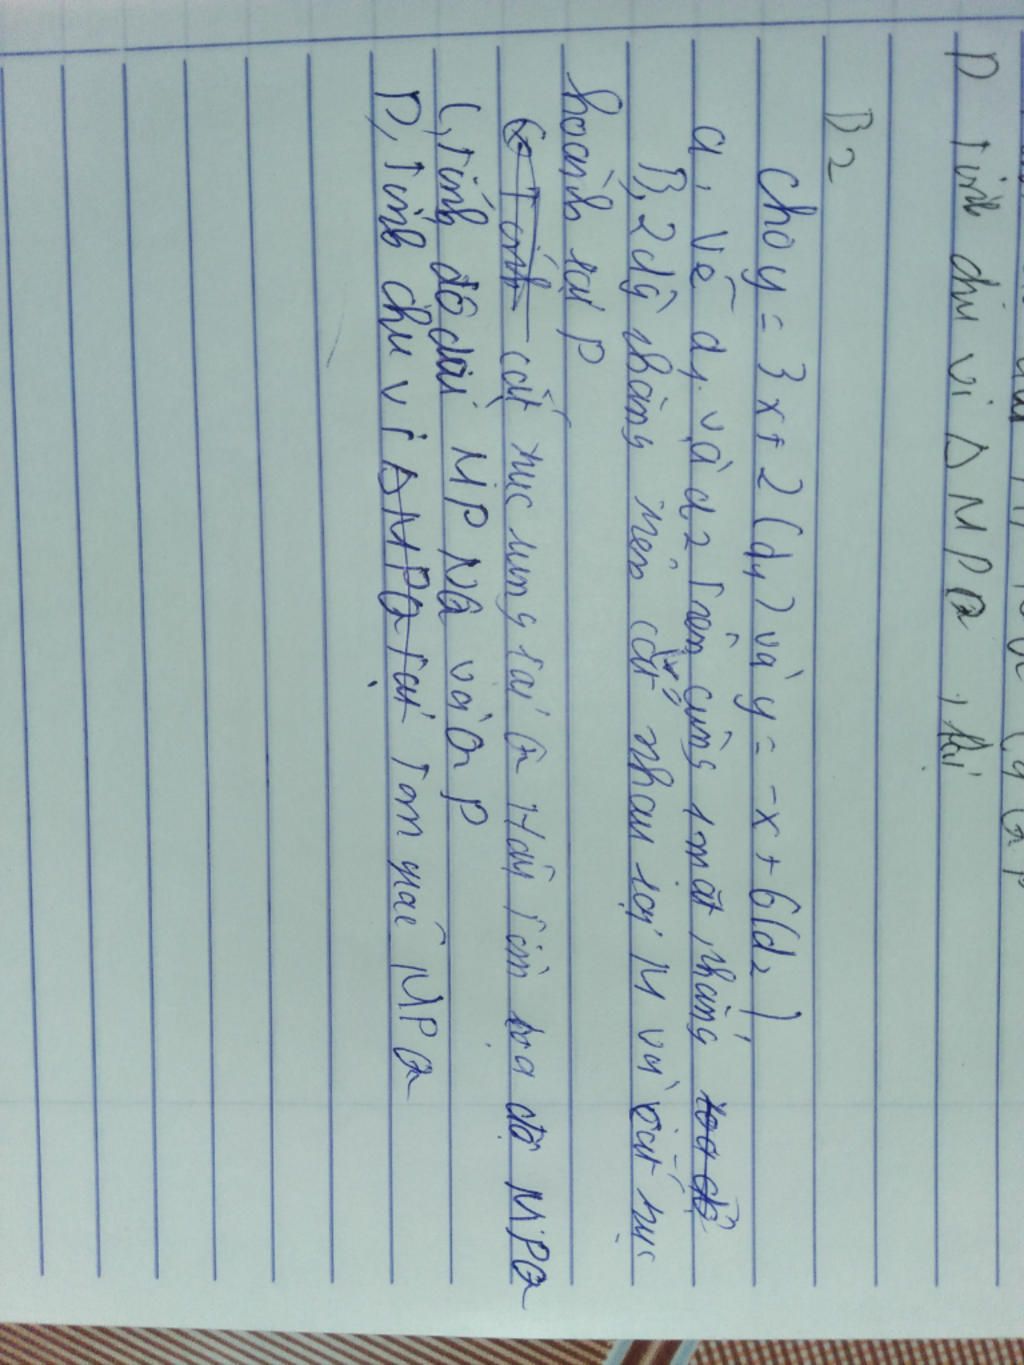 P Tính chu vi Δ MPQ,
B2
Cho y = 3x + 2 (d1) và y = -x + 6 (d2)
a, Vẽ d1 và d2 trên cùng 1 mặt phẳng toạ độ
B, 2 đg thẳng trên cắt nhau tại M và cắt trục
hoành tại P
Tính cắt trục tung tại Q Hãy tìm toạ độ MPQ
C, Tính độ dài MP và QP
D, Tính chu vi ΔMPQ tại Tam giác MPQ